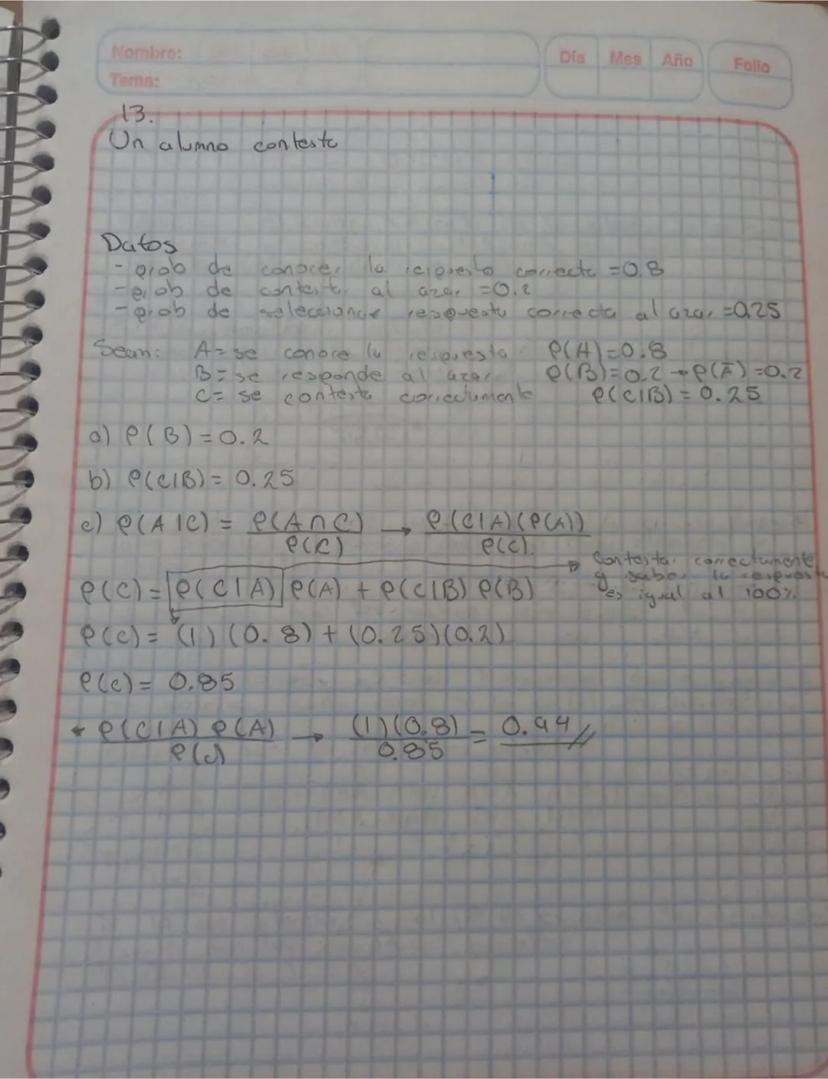 Nombre:
Tema:
Día Mes Año Folio
13.
Un alumno contesta
Datos
- prob de conocer la respuesta correcta = 0.8
- prob de contesta al azar = 0.2
- prob de seleccionar respuesta correcta al azar = 0.25
Sean: A = se conoce la respuesta P(A) = 0.8
B = se responde al azar P(B) = 0.2 → P(Ā) = 0.2
C = se contesta correctamente P(C|B) = 0.25
a) P(B) = 0.2
b) P(C|B) = 0.25
c) P(A|C) = P(A∩C)/P(C) → P(C|A)(P(A))/P(C)
P(C) = P(C|A) P(A) + P(C|B) P(B)
Contestar correctamente
y saber la respuesta
es igual al 100%
P(C) = (1)(0.8) + (0.25)(0.2)
P(C) = 0.85
P(C|A) P(A)/P(C) → (1)(0.8)/0.85 = 0.94